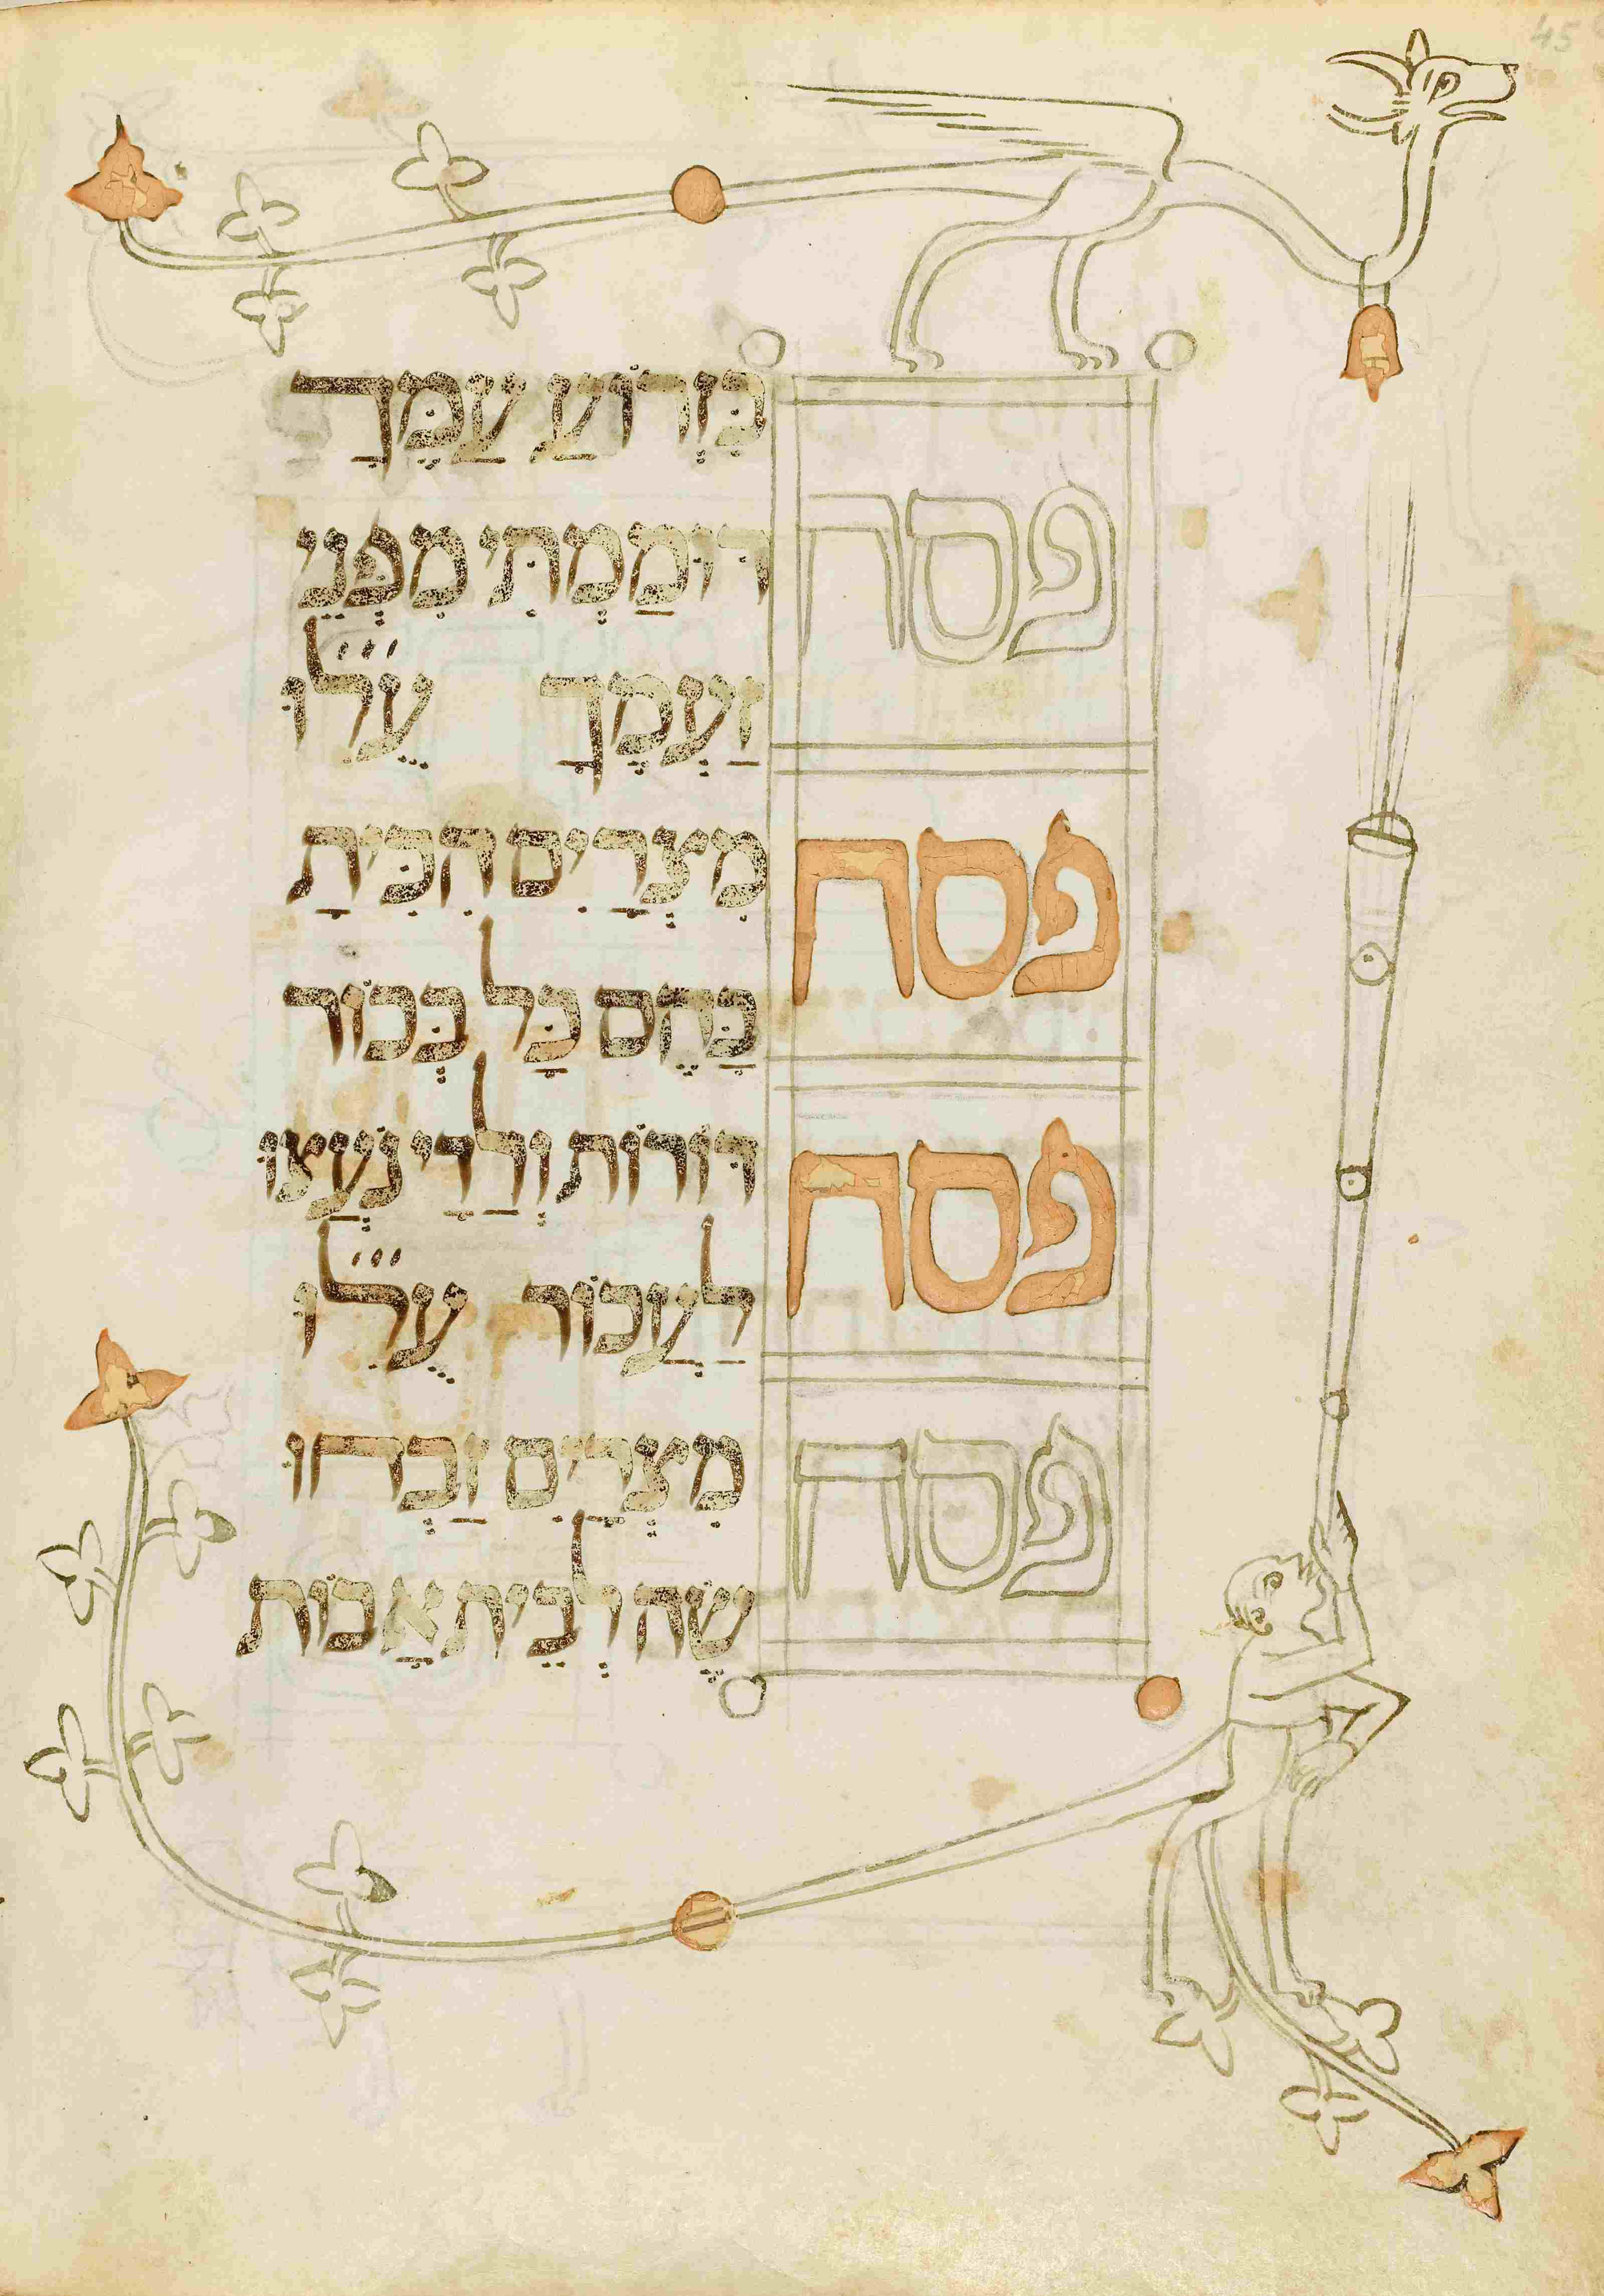 45
פסח
פסח
פסח
פסח
בִּזְרוֹעַ עַמֶּךָ
דוּמַמְתִּי מִפְּנֵי
זַעְמֶךָ עֻלו
מִצְרַיִם הִכִּיתָ
בָּהֶם כָּל בְּכוֹר
דּוֹרוֹת וְלַדַי נֹעֲצוּ
לַעְכּוֹר עֻלו
מִצְרַיִם זַבְחוּ
שֶׂה לְבֵית אָבוֹת